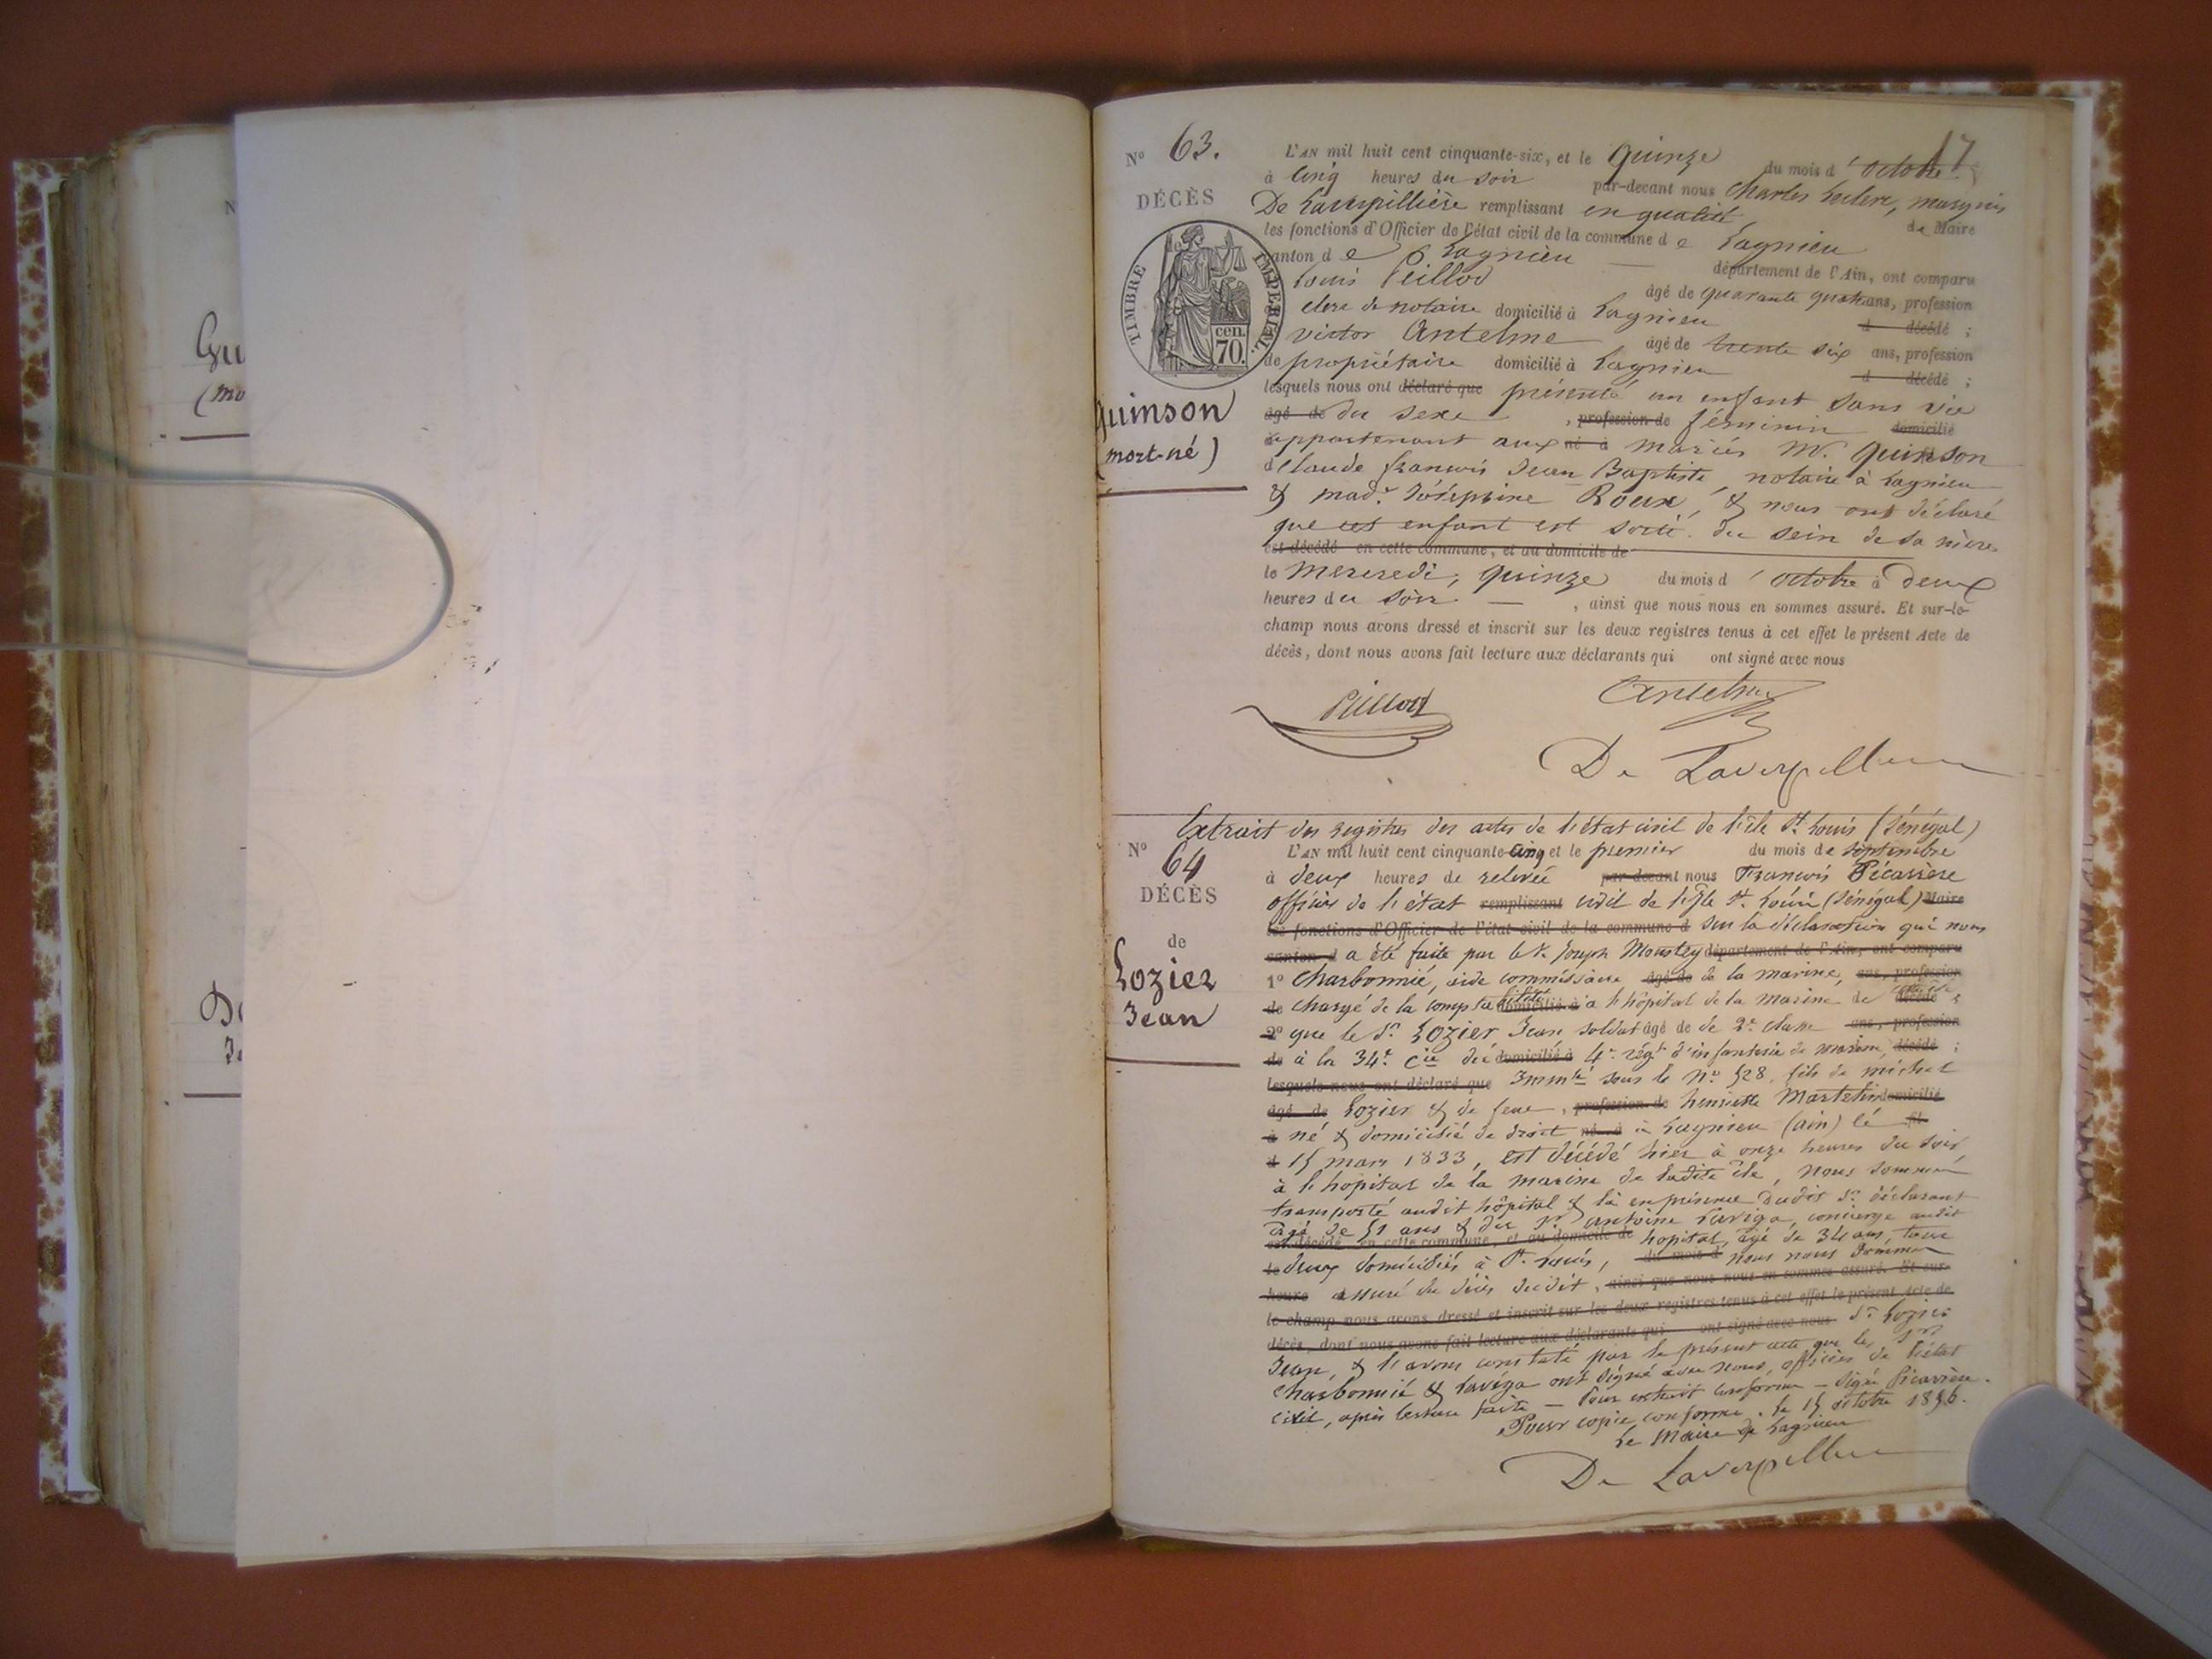 Gu
(mo
17
N° 63.
DÉCÈS
TIMBRE IMPÉRIAL
cen.
70.
Quinson
(mort-né)
L'AN mil huit cent cinquante-six, et le quinze du mois d'octobre
à cinq heures du soir par-devant nous Charles Leclerc, marquis
De Laverpillière remplissant en qualité de Maire
les fonctions d'Officier de l'état civil de la commune de Lagnieu
canton de Lagnieu département de l'Ain, ont comparu
Louis Peillod âgé de quarante quatre ans, profession
clerc de notaire domicilié à Lagnieu d décédé ;
victor Antelme âgé de trente six ans, profession
de propriétaire domicilié à Lagnieu d décédé ;
lesquels nous ont déclaré que présenté un enfant sans vie
âgé de du sexe , profession de féminin domicilié
appartenant aux né à mariés M. Quinson
Claude françois Jean Baptiste, notaire à Lagnieu
& mad.e Joséphine Roux, & nous ont déclaré
que cet enfant est sorti du sein de sa mère
est décédé en cette commune, et au domicile de
le mercredi, quinze du mois d'octobre à deux
heures du soir , ainsi que nous nous en sommes assuré. Et sur-le-
champ nous avons dressé et inscrit sur les deux registres tenus à cet effet le présent Acte de
décès, dont nous avons fait lecture aux déclarants qui ont signé avec nous
Peillod
Antelme
De Laverpilliere
Extrait des registres des actes de l'état civil de l'île St. Louis (Sénégal)
N° 64
DÉCÈS
de
Lozier
Jean
L'AN mil huit cent cinquante-cinq et le premier du mois de septembre
à deux heures de relevée par-devant nous François Pécarrère
officier de l'état remplissant civil de l'île St. Louis (Sénégal) Maire
les fonctions d'Officier de l'état civil de la commune d sur la déclaration qui nous
canton d a été faite par le Sr. Joseph département de l'Ain, ont comparu
1° Charbonnié, aide commissaire âgé de de la marine, ans, profession
de chargé de la comptabilité domicilié à à l'hôpital de la marine de décédé ;
2° que le Sr. Lozier Jean soldat âgé de de 2e. classe ans, profession
de à la 34e. Cie du domicilié à 4e. régt. d'infanterie de marine, décédé ;
lesquels nous ont déclaré que Immlé sous le No. 528, fils de michel
âgé de Lozier & de feue , profession de henriette Martelin domicilié
à né & domicilié de droit né à à Lagnieu (ain) le fil
d 15 mars 1833, est décédé hier à onze heures du soir
à l'hôpital de la marine de ladite île, nous sommes
transporté audit hôpital & là en présence dudit Sr. déclarant
âgé de 51 ans & du Sr. antoine Laviga, concierge audit
est décédé en cette commune, et au domicile de hôpital, âgé de 34 ans, tous
le deux domiciliés à St. Louis, du mois d nous nous sommes
heure assuré du décès dudit , ainsi que nous nous en sommes assuré. Et sur-
le-champ nous avons dressé et inscrit sur les deux registres tenus à cet effet le présent Acte de
décès, dont nous avons fait lecture aux déclarants qui ont signé avec nous Sr. Lozier
Jean, & l'avons constaté par le présent acte que les Srs
Charbonnié & Laviga ont signé avec nous, officier de l'état
civil, après lecture faite — Pour extrait conforme — signé Picarrère.
Pour copie conforme. Le 15 octobre 1856.
Le Maire de Lagnieu
De Laverpilliere